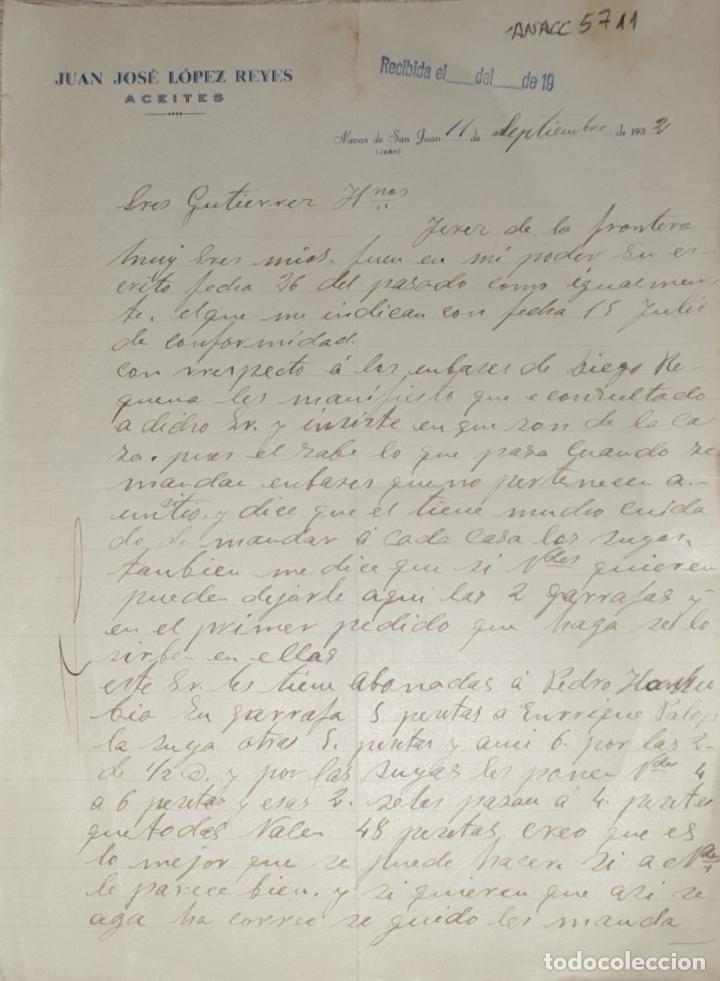 ANACC 5711
JUAN JOSÉ LÓPEZ REYES
ACEITES
Recibida el___del___de 19
Navas de San Juan 11 de Septiembre de 1932
(Jaén)
Sres Gutierrez Hnos
Jerez de la frontera
Muy Sres mios. en mi poder su es-
crito fecha 26 del pasado como igualmen-
te, el que me indican con fecha 15 Julio
de conformidad.
con respecto á los enbases de Diego Re-
quena les manifiesto que e consultado
a dicho Sr. y insiste en que son de la ca
sa. pues el sabe lo que pasa cuando se
mandan enbases que no pertenecen a
un sitio. y dice que el tiene mucho cuida
do de mandar á cada casa los suyos,
tanbien me dice que si Vdes quieren
pueden dejarle aqui las 2 garrafas y
en el primer pedido que haga se lo
sirben en ellas
este Sr. les tiene abonadas á Pedro
bio su garrafa 5 pesetas a Enrrique
la suya otras 5. pesetas y a mi 6. por las 2-
de 1/2 @. y por las suyas les ponen Vdes 4
a 6 pesetas y esas 2. se las pasan á 4. pesetas
que todas valen 48 pesetas. creo que es
lo mejor que se puede hacer. si a Vdes
le parece bien. y si quieren que asi se
aga ha correo seguido les manda
todocoleccion.net